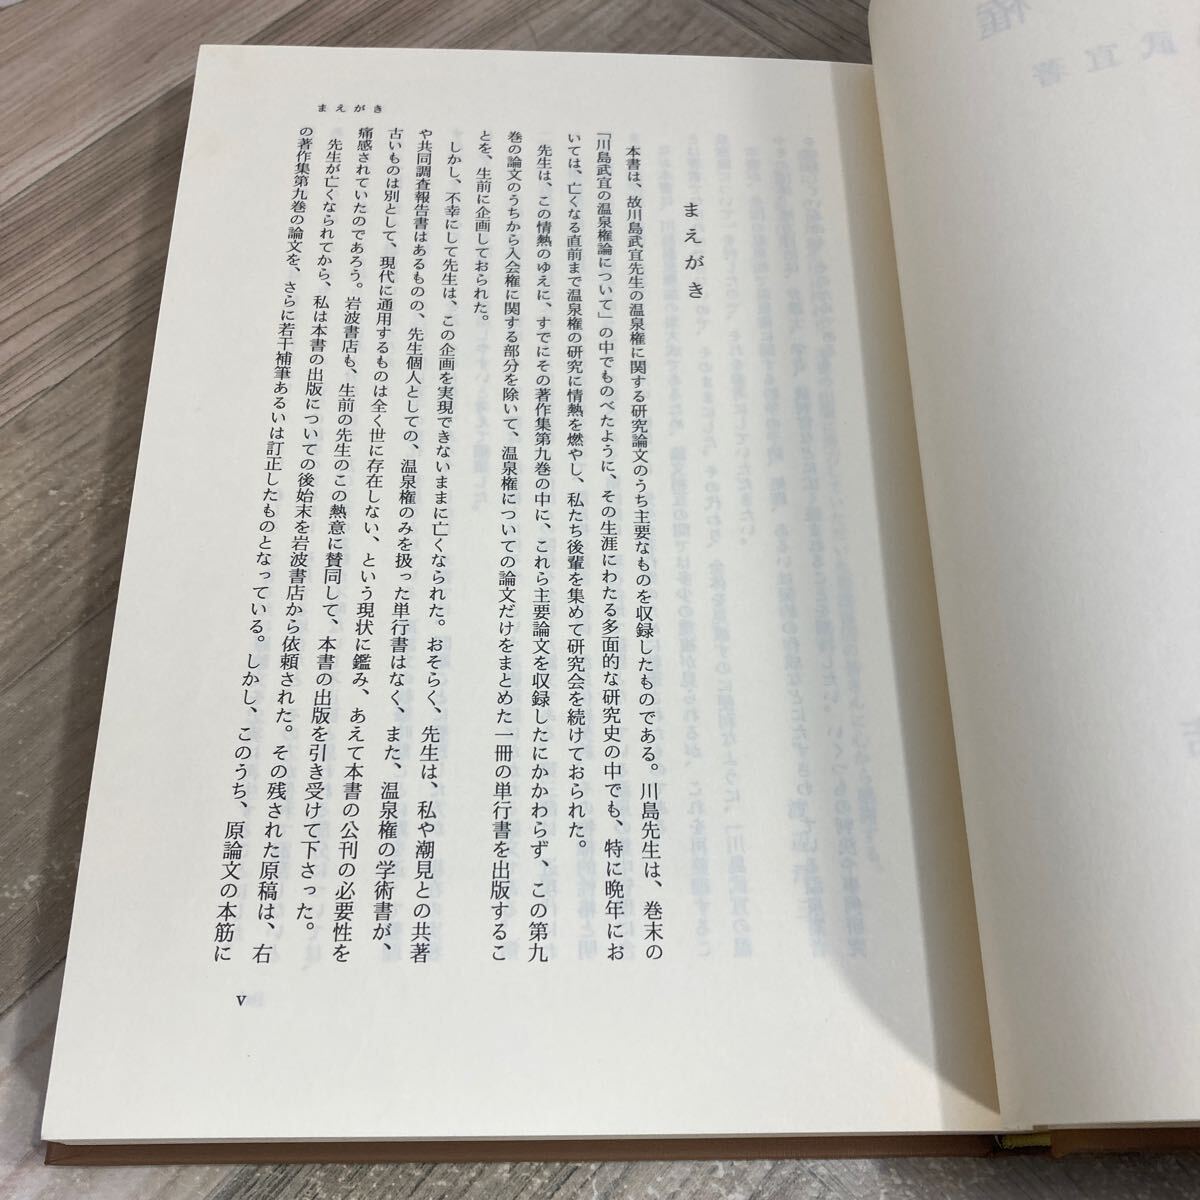 まえがき
まえがき
本書は、故川島武宜先生の温泉権に関する研究論文のうち主要なものを収録したものである。川島先生は、巻末の
「川島武宜の温泉権論について」の中でものべたように、その生涯にわたる多面的な研究史の中でも、特に晩年にお
いては、亡くなる直前まで温泉権の研究に情熱を燃やし、私たち後輩を集めて研究会を続けておられた。
先生は、この情熱のゆえに、すでにその著作集第九巻の中に、これら主要論文を収録したにかかわらず、この第九
巻の論文のうちから入会権に関する部分を除いて、温泉権についての論文だけをまとめた一冊の単行書を出版するこ
とを、生前に企画しておられた。
しかし、不幸にして先生は、この企画を実現できないままに亡くなられた。おそらく、先生は、私や潮見との共著
や共同調査報告書はあるものの、先生個人としての、温泉権のみを扱った単行書はなく、また、温泉権の学術書が、
古いものは別として、現代に通用するものは全く世に存在しない、という現状に鑑み、あえて本書の公刊の必要性を
痛感されていたのであろう。岩波書店も、生前の先生のこの熱意に賛同して、本書の出版を引き受けて下さった。
先生が亡くなられてから、私は本書の出版についての後始末を岩波書店から依頼された。その残された原稿は、右
の著作集第九巻の論文を、さらに若干補筆あるいは訂正したものとなっている。しかし、このうち、原論文の本筋に
v
権
武宜著